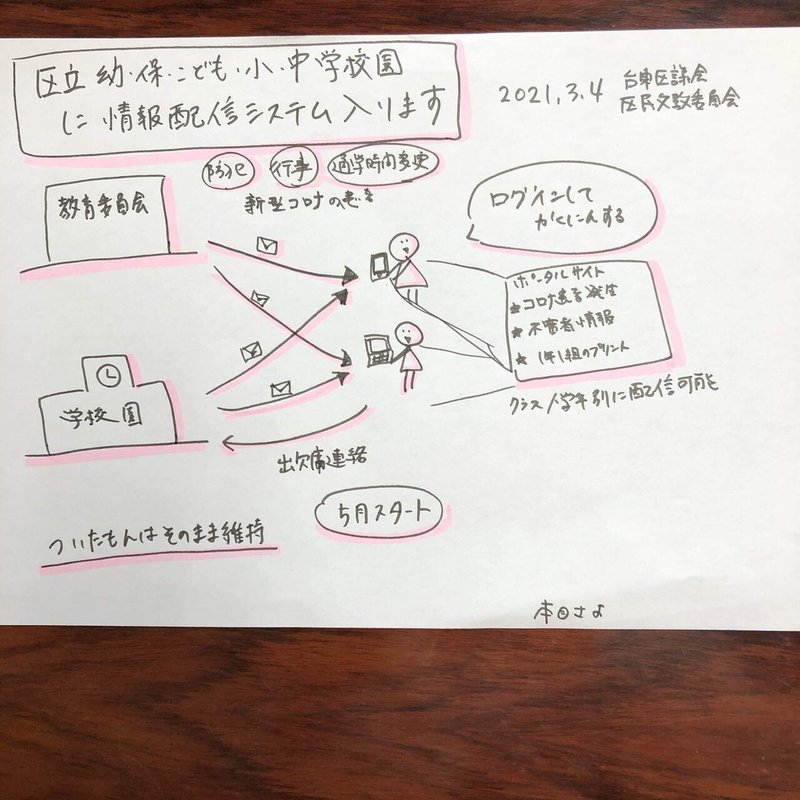 区立 幼・保・こども・小・中学校園
に 情報配信システム 入ります
2021.3.4
台東区議会
区民文教委員会
防犯
行事
通学時間変更
新型コロナの
教育委員会
ログインして
かくにんする
ポータルサイト
★コロナ 発生
★不審者情報
★1年1組のプリント
クラス/学年別に配信可能
学校園
出欠席連絡
5月スタート
ついたもんはそのまま維持
本目さよ